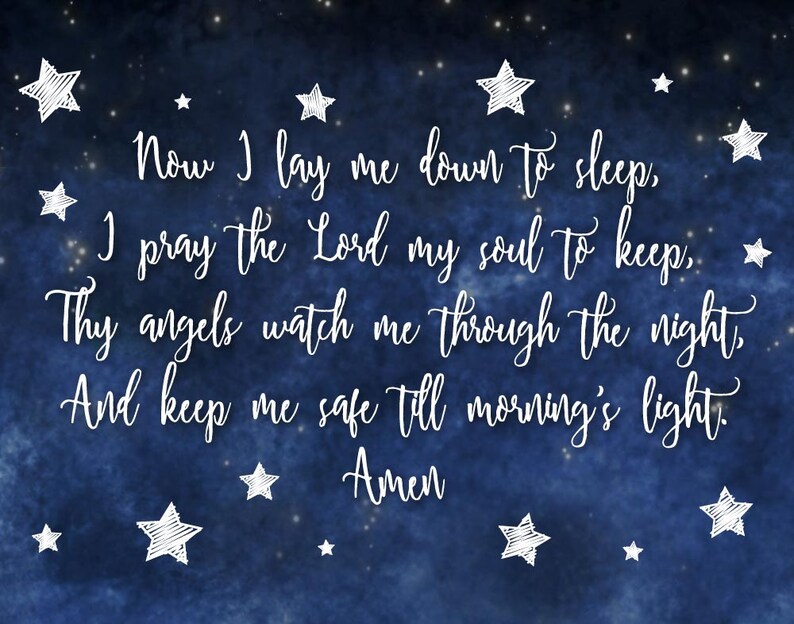 Now I lay me down to sleep,
I pray the Lord my soul to keep,
Thy angels watch me through the night,
And keep me safe till morning's light.
Amen